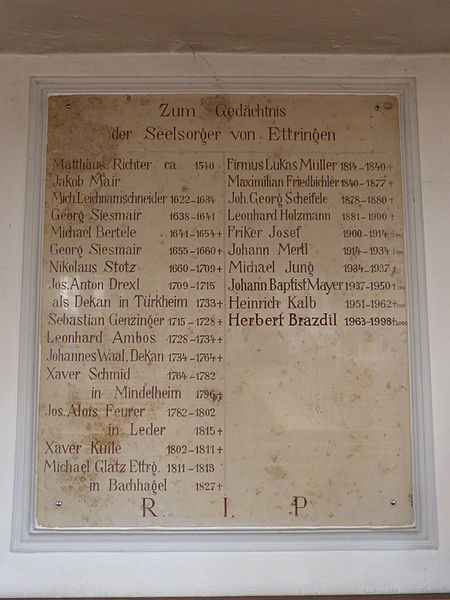 Zum Gedächtnis
der Seelsorger von Ettringen
Matthäus Richter ca 1540
Jakob Mair
Mich. Leichnamschneider 1622-1634
Georg Siesmair 1638-1641
Michael Bertele 1641-1654+
Georg Siesmair 1655-1660+
Nikolaus Stotz 1660-1709+
Jos. Anton Drexl 1709-1715
als Dekan in Türkheim 1733+
Sebastian Genzinger 1715-1728+
Leonhard Ambos 1728-1734+
Johannes Waal, Dekan 1734-1764+
Xaver Schmid 1764-1782
in Mindelheim 1796+
Jos. Alois Feurer 1782-1802
in Leder 1815+
Xaver Kuile 1802-1811+
Michael Glatz Ettrg. 1811-1813
in Bachhagel 1827+
Firmus Lukas Müller 1814-1840+
Maximilian Friedbichler 1840-1877+
Joh. Georg Scheifele 1878-1880+
Leonhard Holzmann 1881-1900+
Friker Josef 1900-1914+
Johann Mertl 1914-1934+
Michael Jung 1934-1937+
Johann Baptist Mayer 1937-1950+
Heinrich Kalb 1951-1962+
Herbert Brazdil 1963-1998+
R I P